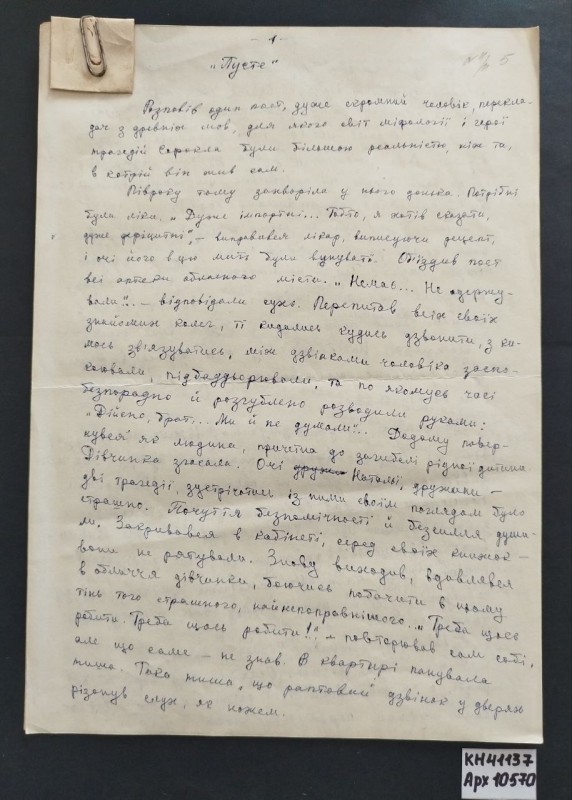 - 1 -
„Пусте"
Розповів один поет, дуже скромний чоловік, перекла-
дач з древніх мов, для якого світ міфології і герої
трагедій Софокла були більшою реальністю, ніж та,
в котрій він жив сам.
Півроку тому захворіла у нього донька. Потрібні
були ліки. „Дуже імпортні... Тобто, я хотів сказати,
дуже дефіцитні", - виправився лікар, виписуючи рецепт,
і очі його в цю мить були винуваті. Об'їздив поет
всі аптеки обласного міста. „Немає... Не одержу-
вали"... - відповідали сухо. Перепитав всіх своїх
знайомих колег, ті кидались кудись дзвонити, з ки-
мось зв'язуватись, між дзвінками чоловіка заспо-
коювали, підбадьорювали, та по якомусь часі
безпорадно й розгублено розводили руками:
„Дійсно, брат... Ми й не думали"... Додому повер-
нувся як людина, причетна до загибелі рідної дитини
Дівчинка згасала. Очі Наталі, дружини -
дві трагедії, зустрічатись із ними своїм поглядом було
страшно. Почуття безпомічності й безсилля души-
ли. Закривався в кабінеті, серед своїх книжок -
вони не рятували. Знову виходив, вдивлявся
в обличчя дівчинки, боючись побачити в ньому
тінь того страшного, найнепоправнішого. „Треба щось
робити. Треба щось робити!" - повторював сам собі,
але що саме - не знав. В квартирі панувала
тиша. Така тиша, що раптовий дзвінок у дверях
різонув слух, як ножем.
КН41137
Арх 10570